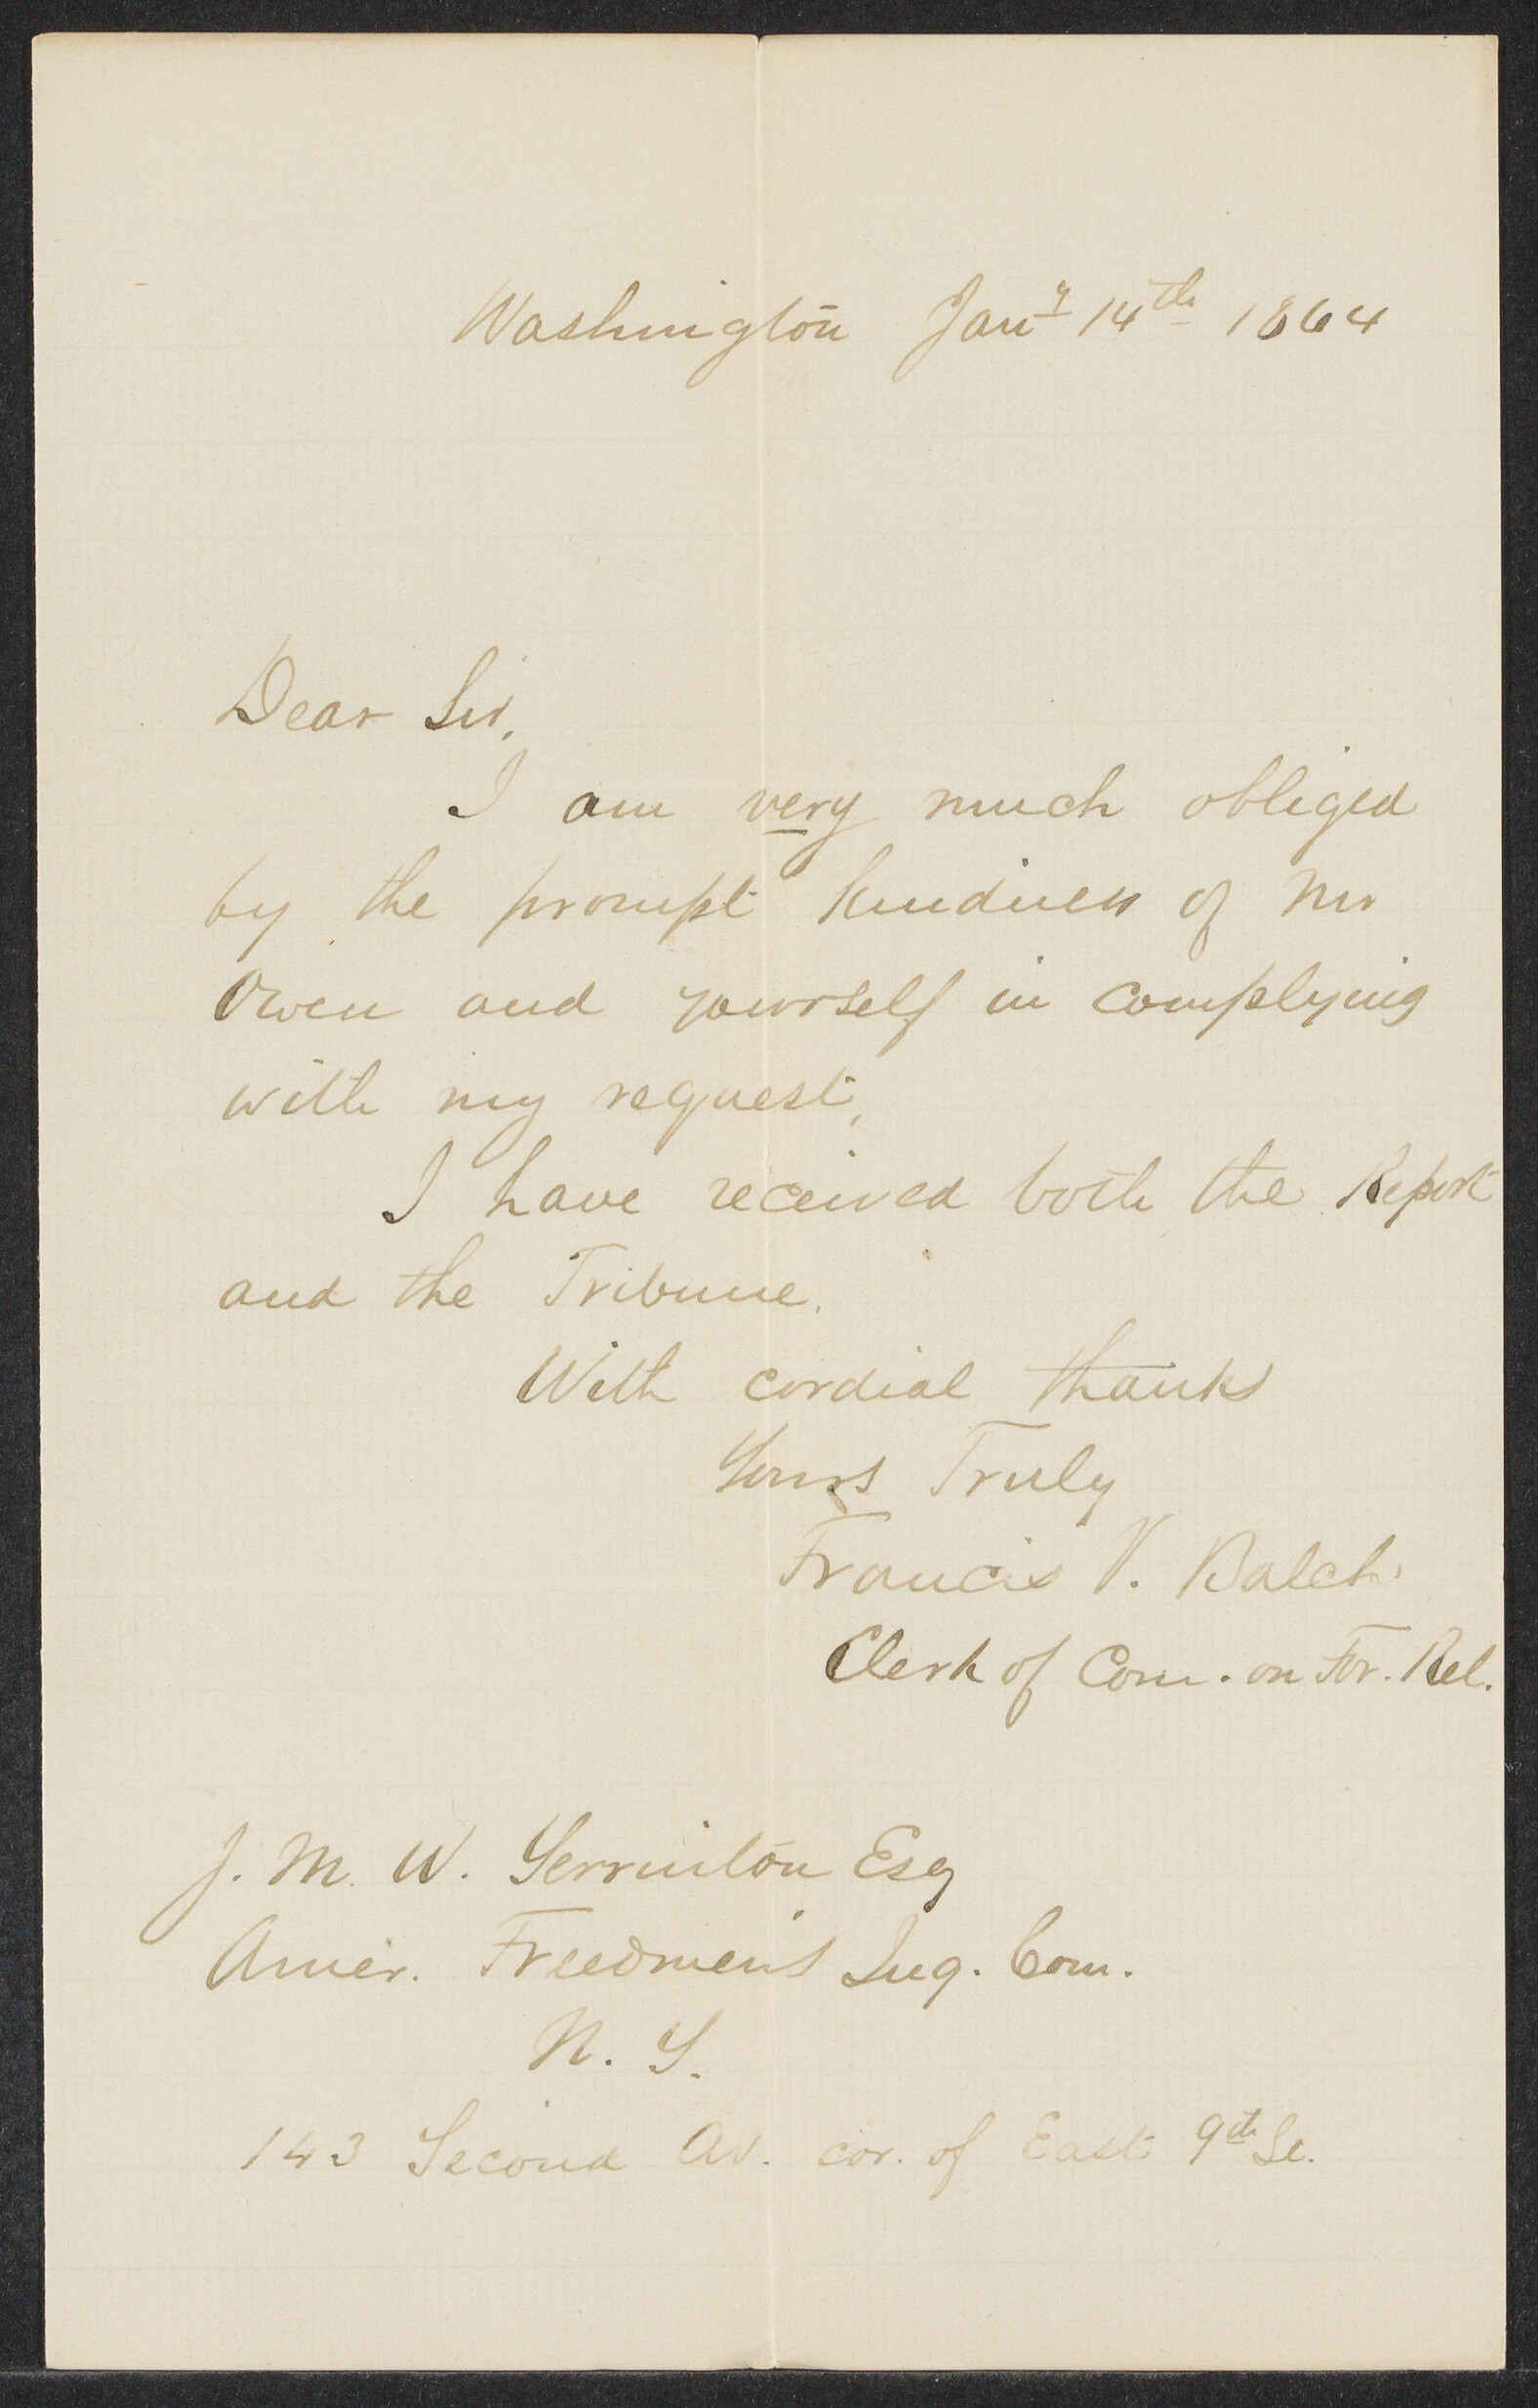 Washington Jany 14th 1864
Dear Sir,
I am very much obliged
by the prompt kindness of Mr
Owen and yourself in complying
with my request,
I have received both the Report
and the Tribune.
With cordial thanks
Yours Truly
Francis V. Balch
Clerk of Com. on For. Rel.
J. M. W. Yerrinton Esq
Amer. Freedmen's Inq. Com.
N. Y.
143 Second Av. cor. of East 9th St.